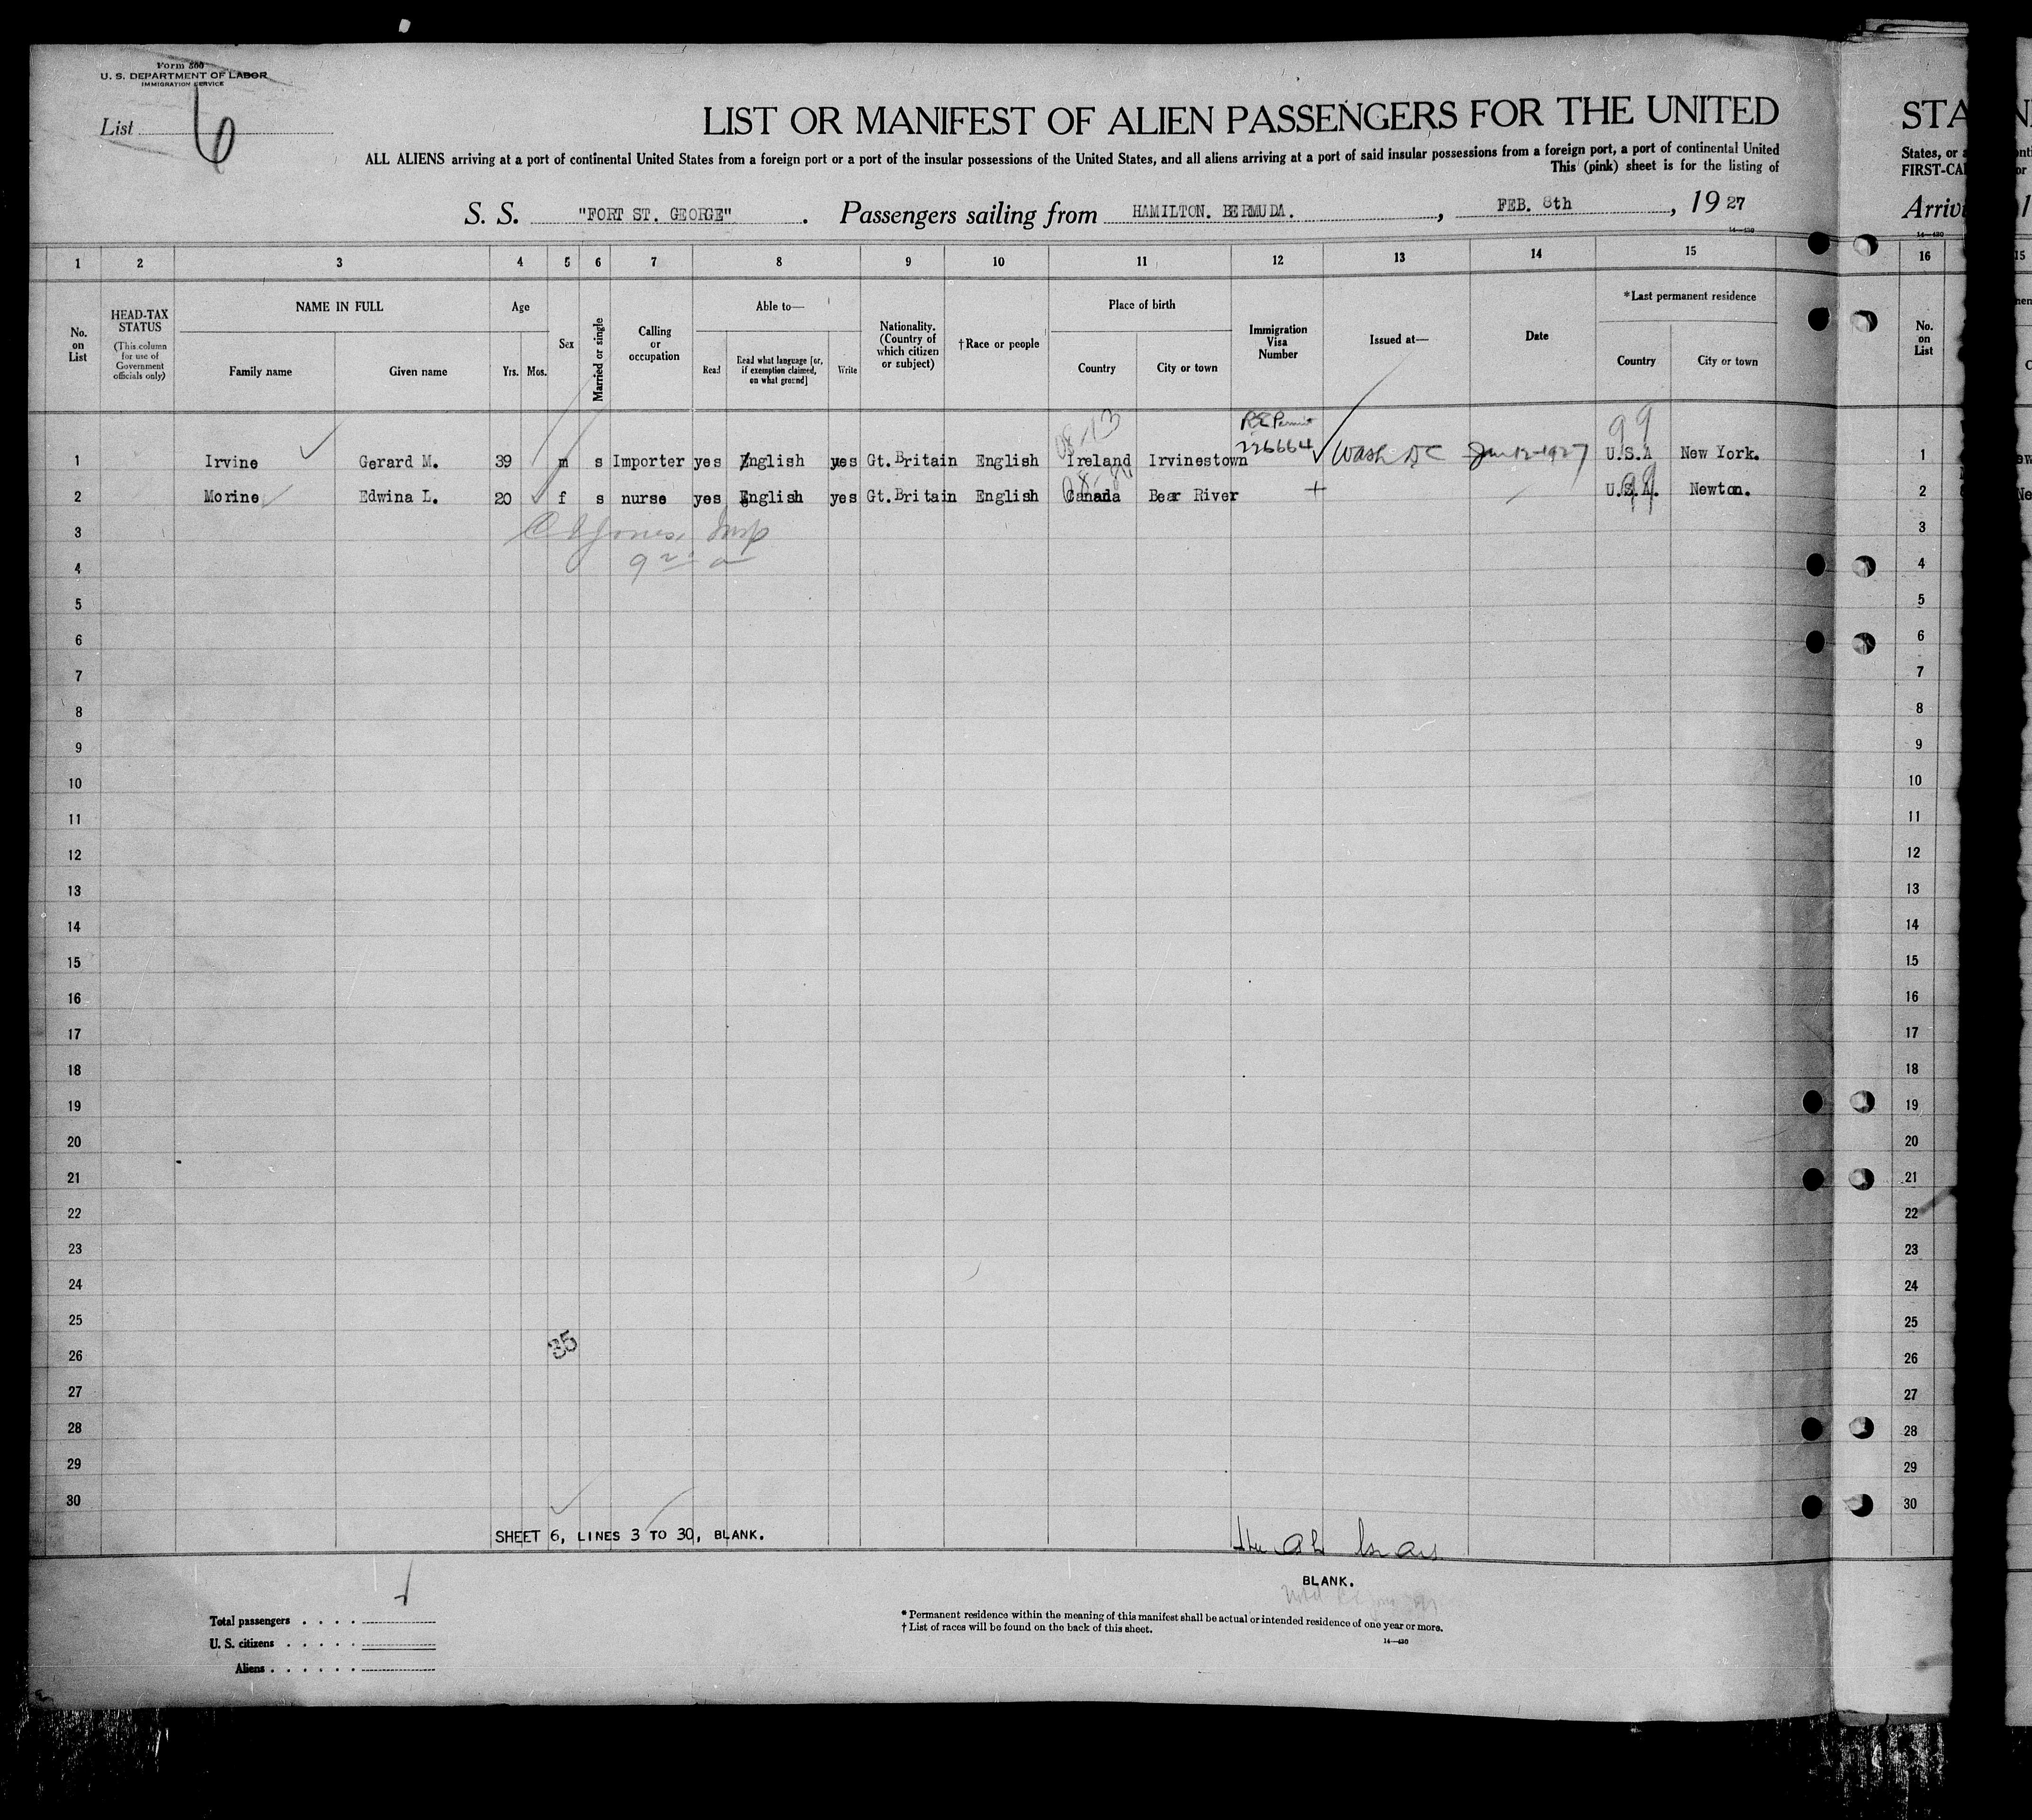 Form 500
U. S. DEPARTMENT OF LABOR
IMMIGRATION SERVICE
List 6
LIST OR MANIFEST OF ALIEN PASSENGERS FOR THE UNITED
ALL ALIENS arriving at a port of continental United States from a foreign port or a port of the insular possessions of the United States, and all aliens arriving at a port of said insular possessions from a foreign port, a port of continental United
This (pink) sheet is for the listing of
S. S. "FORT ST. GEORGE". Passengers sailing from HAMILTON. BERMUDA., FEB. 8th, 1927
14—430
1 2 3 4 5 6 7 8 9 10 11 12 13 14 15
No. on List
HEAD-TAX STATUS (This column for use of Government officials only)
NAME IN FULL
Family name Given name
Age
Yrs. Mos.
Sex
Married or single
Calling or occupation
Able to—
Read Read what language [or, if exemption claimed, on what ground] Write
Nationality. (Country of which citizen or subject)
†Race or people
Place of birth
Country City or town
Immigration Visa Number
Issued at—
Date
*Last permanent residence
Country City or town
RE Permit
99
1 Irvine Gerard M. 39 m s Importer yes English yes Gt.Britain English Ireland Irvinestown 226664 Wash DC Jan 12-1927 U.S.A New York.
99
2 Morine Edwina L. 20 f s nurse yes English yes Gt.Britain English Canada Bear River U.S.A. Newton.
3
4
5
6
7
8
9
10
11
12
13
14
15
16
17
18
19
20
21
22
23
24
25
35
26
27
28
29
30
SHEET 6, LINES 3 TO 30, BLANK.
BLANK.
Total passengers
U. S. citizens
Aliens
* Permanent residence within the meaning of this manifest shall be actual or intended residence of one year or more.
† List of races will be found on the back of this sheet.
14—430
STA
States, or
FIRST-CA
Arriv
14—430
16
No. on List
1
2
3
4
5
6
7
8
9
10
11
12
13
14
15
16
17
18
19
20
21
22
23
24
25
26
27
28
29
30